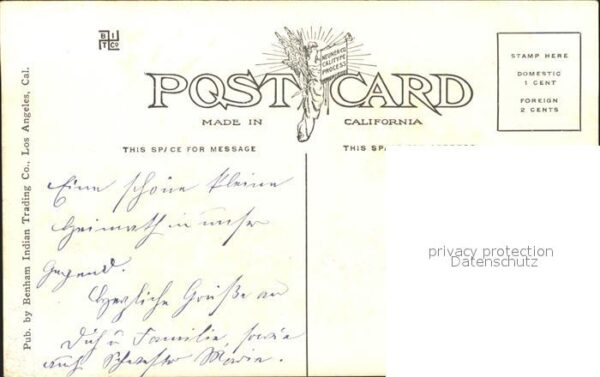 B I
T Co
NEUNER CO.
CALITYPE
PROCESS
POST CARD
MADE IN CALIFORNIA
THIS SPACE FOR MESSAGE
THIS SPACE FOR ADDRESS
STAMP HERE
DOMESTIC
1 CENT
FOREIGN
2 CENTS
Pub. by Benham Indian Trading Co., Los Angeles, Cal.
Eine schöne kleine
Heimath in unser
Gegend.
Herzliche Grüße an
Dich u Familie, sowie
auch Schwester Marie.
privacy protection
Datenschutz